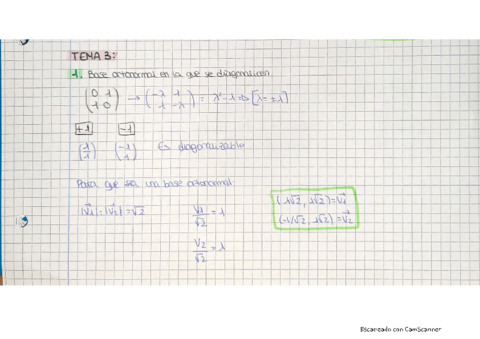 TEMA 3:
1. Base ortonormal en la que se diagonalicen
(0 1
1 0) → (-λ 1
1 -λ) = λ²-1 => [λ = ±1]
+1 -1
(1
1) (-1
1) Es diagonalizable
Para que sea una base ortonormal:
|V⃗1| = |V⃗1| = √2 V1/√2 = 1 (1/√2, 1/√2) = V⃗1
V2/√2 = 1 (-1/√2, 1/√2) = V⃗2
Escaneado con CamScanner